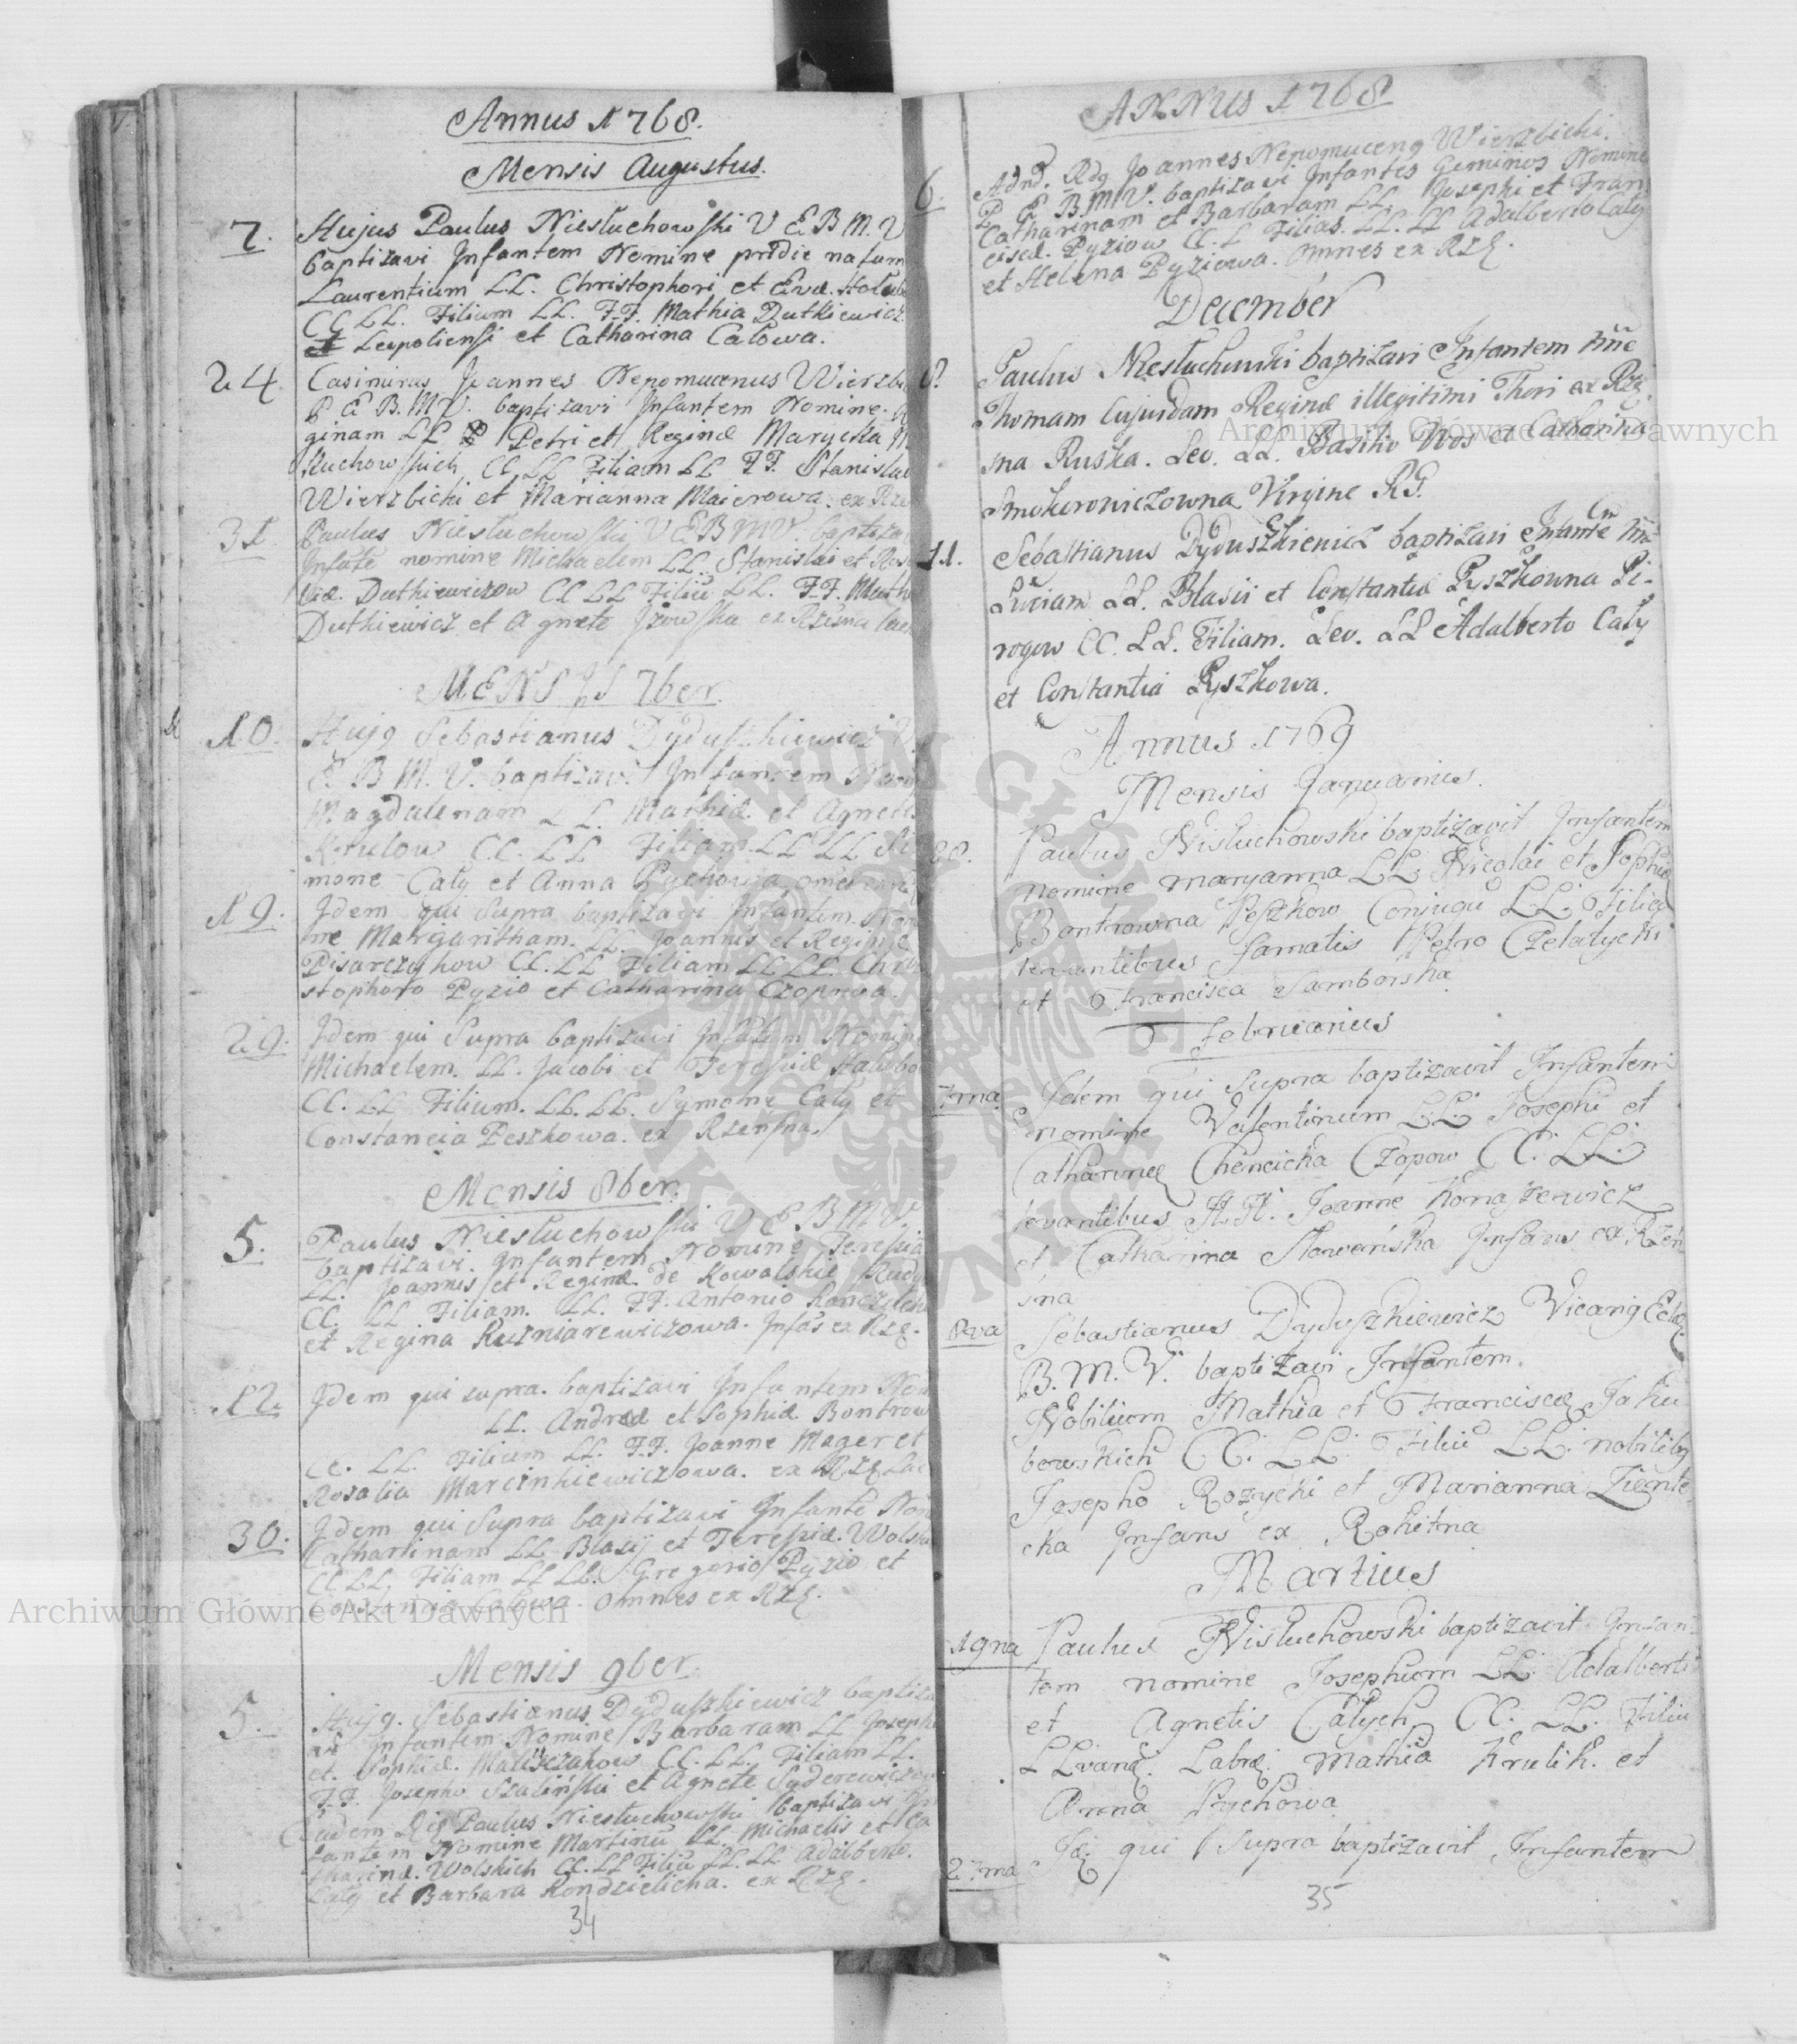 Annus 1768.
Mensis Augustus.
7. Hujus Paulus Niesłuchowski V E B M. V
baptizavi Infantem Nomine pridie natum
Laurentium LL. Christophori et Evæ
CC LL. Filium LL. F.F. Mathia Dutkiewicz
Leopoliensi et Catharina Całowa.
24. Casimirus Joannes Nepomucenus Wierzbi
P E B. M V. baptizavi Infantem Nomine
ginam LL Petri et Reginæ Marycka
Stuchowskich CC LL Filiam LL FF. Stanislao
Wierzbicki et Marianna Maierowa. ex Rze
31. Paulus Niesłuchowski V E B M V. baptiza
Infāte nomine Michaelem LL. Stanislai et Ros
liæ Dutkiewiczow CC LL Filiū LL. F.F. Math
Dutkiewicz et Agnete
MENSIS 7ber.
10. Hujꝯ Sebastianus Dyduszkiewicz V
E B M. V. baptizavi Infantem Nom
Magdalenam LL. Mathiæ et Agnetis
Krulow CC. LL Filiam LL LL Si
mone Cały et Anna Pychowa
19. Idem qui Supra baptizavi Infantem Nom
ne Margaritham. LL. Joannis et Reginæ
Pisarczykow CC. LL Filiam LL LL. Chri
stophoro Pyzio et Catharina Czopowa.
29. Idem qui Supra baptizavi Infātem Nomin
Michaelem. LL. Jacobi et Teresiæ
CC. LL Filium. LL. LL. Symone Cały et
Constancia Peszkowa. ex Rzensna.
Mensis 8ber.
5. Paulus Niesłuchowski V E B M V.
baptizavi. Infantem Nomine Teresia
LL. Joannis et Reginæ de Kowalskie
CC. LL Filiam. LL. FF. Antonio
et Regina Kuzniarewiczowa. Infās ex Rzę.
12 Idem qui supra. baptizavi Infantem Nom
LL. Andreæ et Sophiæ Bontrow
CC. LL. Filium LL. F.F. Joanne Mager et
Rosalia Marcinkiewiczowa. ex Rzę
30. Idem qui Supra baptizavi Infantē Nom
Catharinam LL Blasij et Teresiæ. Wolski
CC LL. Filiam LL LL. Gregorio Pyzio et
Całowa. Omnes ex Rzę.
Mensis 9ber.
5. Hujꝯ. Sebastianus Dyduszkiewicz baptiza
vi Infantem Nomine Barbaram LL Joseph
et Sophiæ. CC. LL. Filiam LL.
F.F. Josepho et Agnete
Eadem Die Paulus Niesłuchowski baptizavi In
fantem Nomine Martinū LL. Michaelis et Ca
tharinæ. Wolskich CC. LL Filiū LL. LL Adalberto.
Cały et Barbara Kondzielicha. ex Rzę.
34
ANNUS 1768
6. Joannes Nepomucenꝯ Wierzbicki.
P E B. M V. baptizavi Infantes Geminos Nomine
Catharinam et Barbaram LL. Josephi et Fran
cisci. Pyziow CC. L Filias. LL. LL Adalberto Cały
et Helena Pyziowa. Omnes ex Rzę.
December
8. Paulus Niesłuchowski baptizavi Infantem nñe
Thomam Cujusdam Reginæ illegitimi Thori ex Rzę
sna Ruska. Lev. LL. Basilio Wos et Catharina
Virgine RG.
11. Sebastianus Dyduszkiewicz baptizavi Infantē nñe
Luciam LL. Blasii et Constantiæ Pyszkowna Pi-
rogow CC. LL. Filiam. Lev. LL Adalberto Cały
et Constantia Pyszkowa.
Annus 1769
Mensis Januarius.
28. Paulus Nisluchowski baptizavit Infantem
nomine maryanna LL Nicolai et Sophiæ
Bontrowna Peszkow Conjugū LL. Filia
levantibus famatis Petro
et Francisca Samborska
Februarius
7ma Idem qui Supra baptizavit Infantem
nomine Valentinum LL: Josephi et
Catharinæ Chencicka Czopow CC. LL.
levantibus FF. Joanne
et Catharina Infans ex Rzen
sna
8va Sebastianus Dyduszkiewicz Vicariꝯ Eclæ
B. M. V. baptizavi Infantem.
Nobilium Mathia et Franciscæ Jaku
bowskich CC. LL. Filiū LL. nobilibꝯ
Josepho Rozycki et Marianna Ziente
cka Infans ex Rokitna
Martius
19na Paulus Nisluchowski baptizavit Infan
tem nomine Josephum LL. Adalberti
et Agnetis Całych CC. LL. Filiū
Mathia Krulik. et
Anna Pychowa
27ma Id: qui Supra baptizavit Infantem
35
Archiwum Główne Akt Dawnych
Archiwum Główne Akt Dawnych